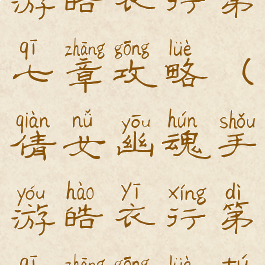 游 皓 衣 行 第
qī zhāng gōng lüè
七 章 攻 略 （
qiàn nǚ yōu hún shǒu
倩 女 幽 魂 手
yóu hào yī xíng dì
游 皓 衣 行 第
qī zhāng gōng lüè